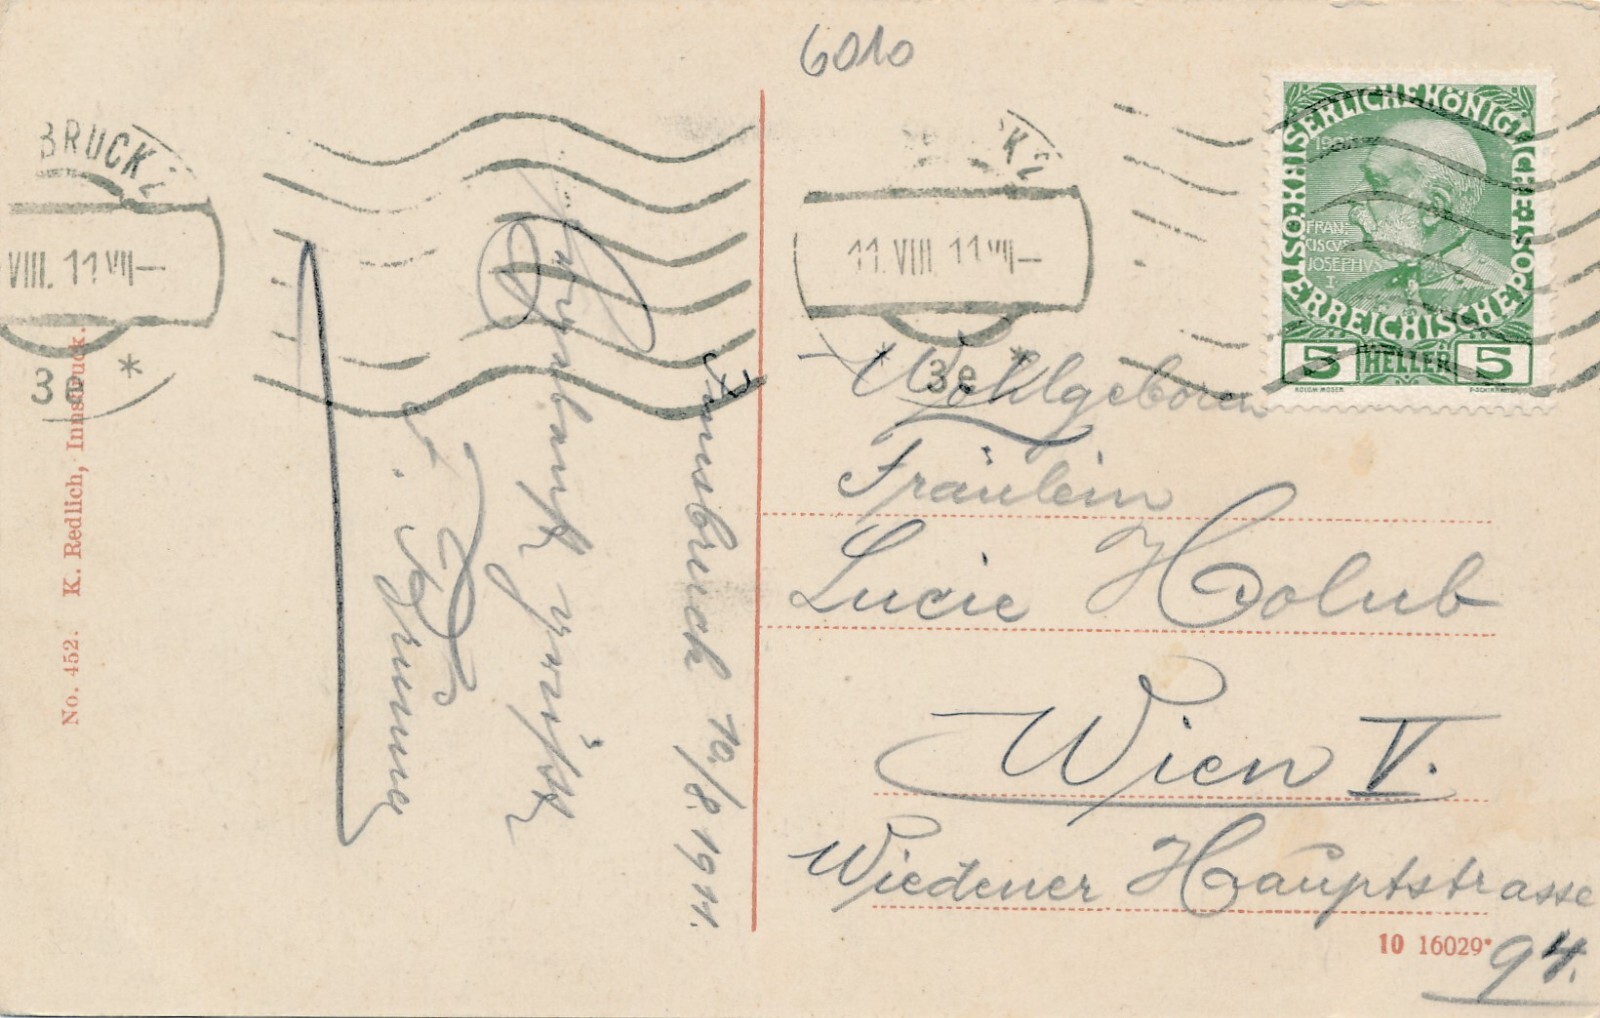 6010
BRUCK 2
VIII. 11 VII—
3e *
K 2
11. VIII. 11 VII—
* 3e *
KAISERLICHE KÖNIGLICHE ÖSTERREICHISCHE POST
1908
FRAN
CISCVS
JOSEPHVS
I
5 HELLER 5
KOLOM. MOSER
Innsbruck 10./8. 1911.
Wohlgeboren
Fräulein
Lucie Holub
Wien V.
Wiedener Hauptstrasse
94.
No. 452. K. Redlich, Innsbruck.
10 16029*